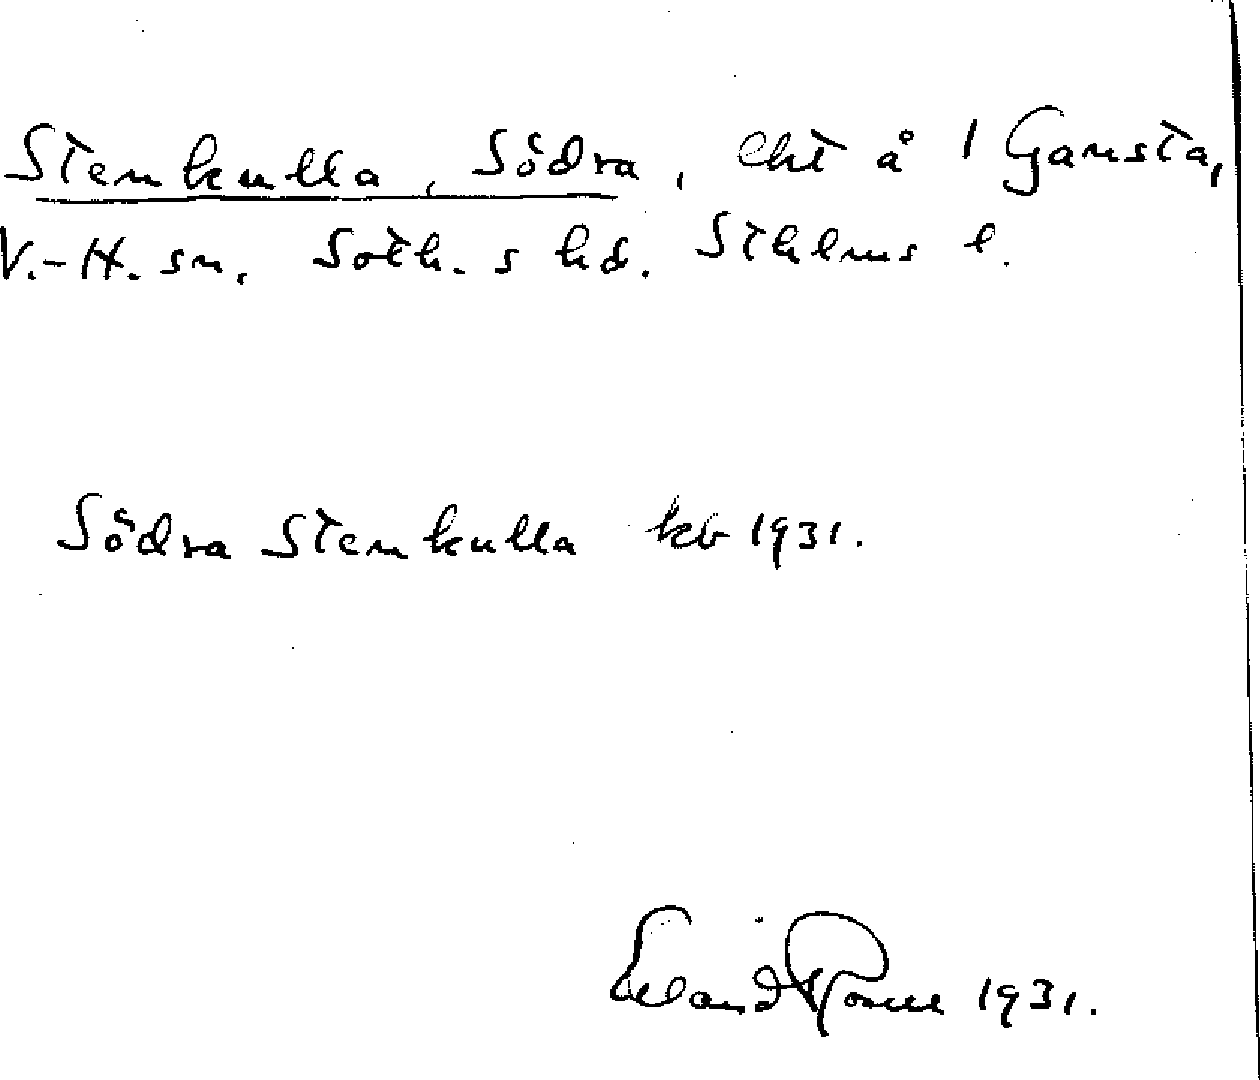 Stenkulla, Södra, lht å 1 Gansta,
V.-H. sn. Soth.s hd. Sthlms l.
Södra Stenkulla kb 1931.
1931.